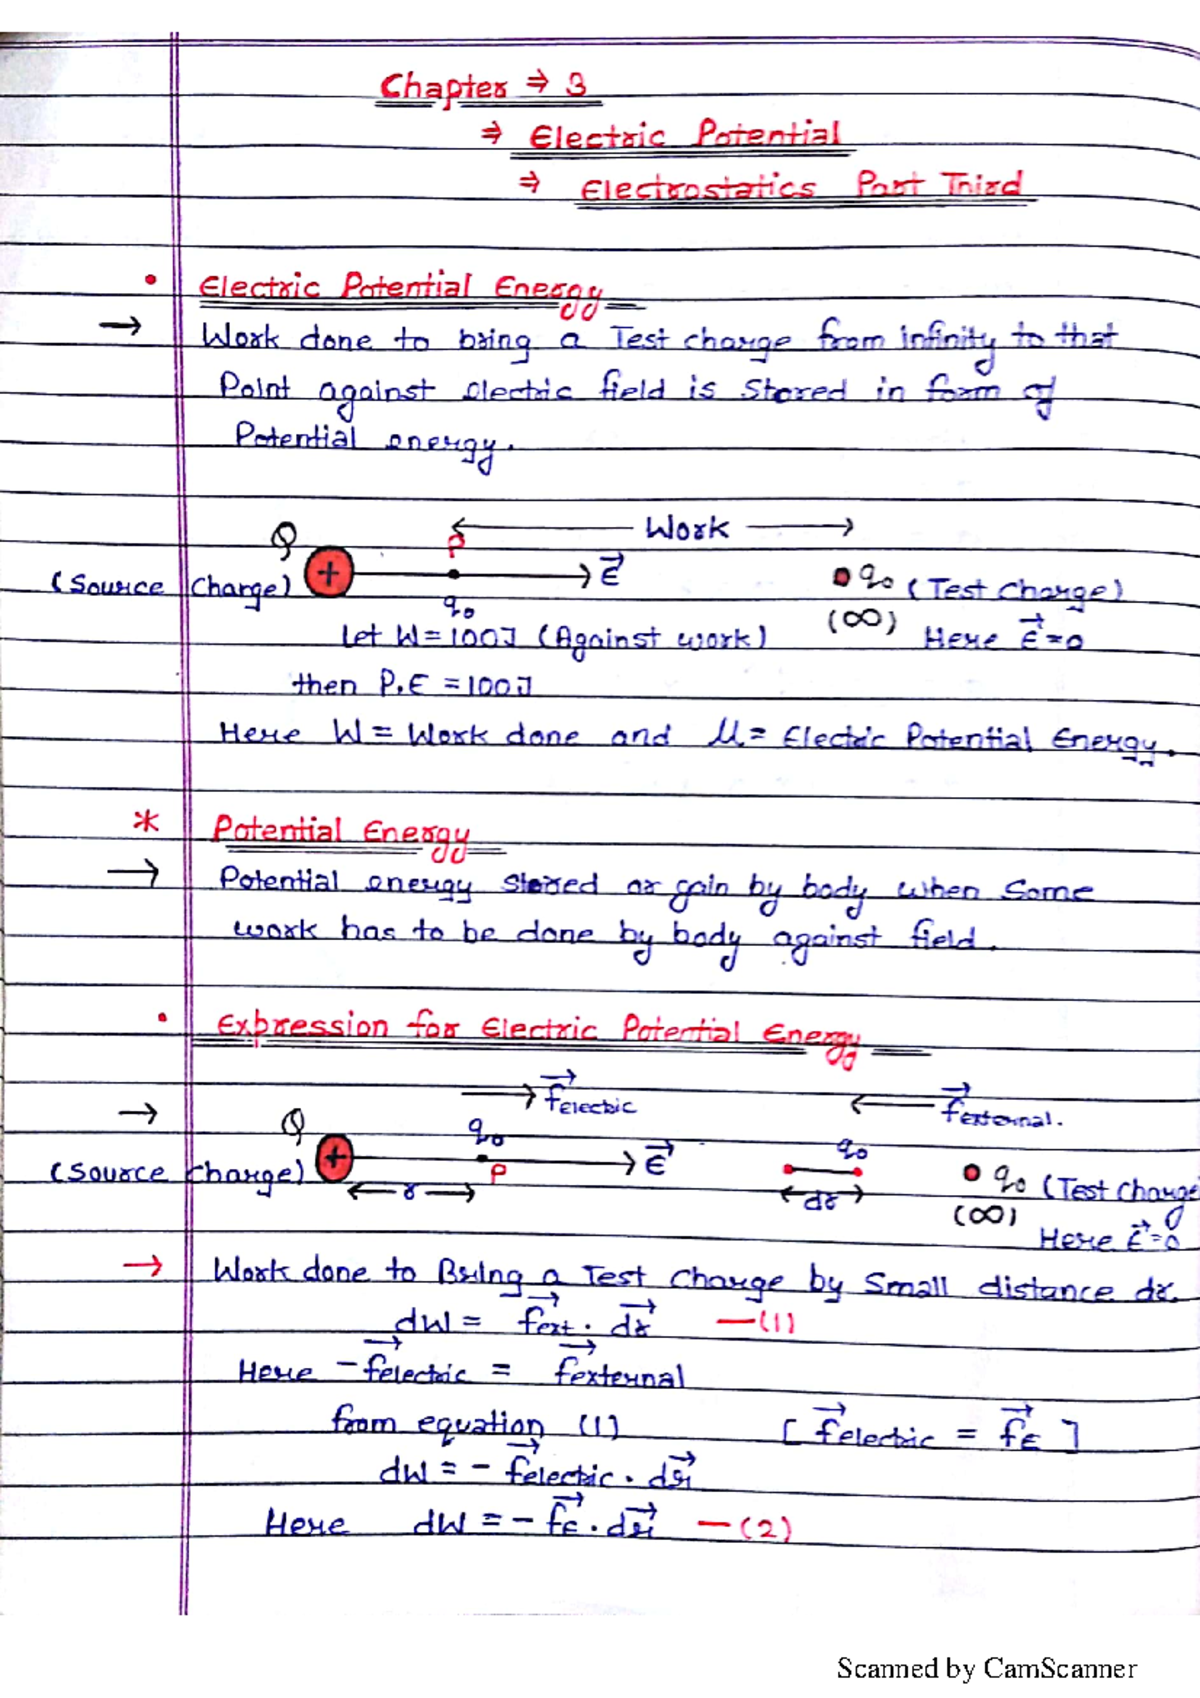 Chapter ⇒ 3
⇒ Electric Potential
⇒ Electrostatics Part Third
• Electric Potential Energy
→ Work done to bring a Test charge from infinity to that
Point against electric field is Stored in form of
Potential energy.
← Work →
Q P
(Source Charge) + E⃗ q₀ (Test Charge)
q₀ (∞)
Let W=100J (Against work) Here E⃗=0
then P.E =100J
Here W= Work done and U= Electric Potential Energy.
* Potential Energy
→ Potential energy stored or gain by body when Some
work has to be done by body against field.
• Expression for Electric Potential Energy
→ F⃗electric ← F⃗external.
→ Q q₀ q₀
(Source Charge) + P E⃗ q₀ (Test Charge
← r → ← dr → (∞)
Here E⃗=0
→ Work done to Bring a Test Charge by Small distance dr.
dW = F⃗ext . dr⃗ —(1)
Here -F⃗electric = F⃗external
from equation (1) [F⃗electric = F⃗E]
dW = - F⃗electric . dr⃗
Here dW = - F⃗E . dr⃗ —(2)
Scanned by CamScanner